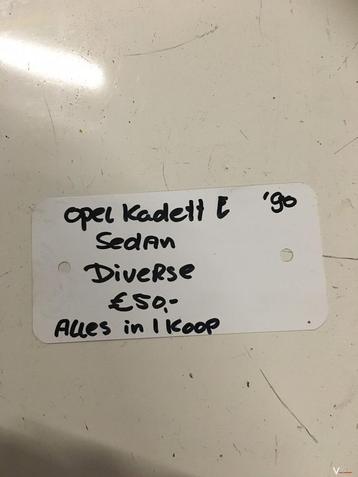 Opel Kadett E '90
Sedan
Diverse
€50,-
Alles in 1 Koop